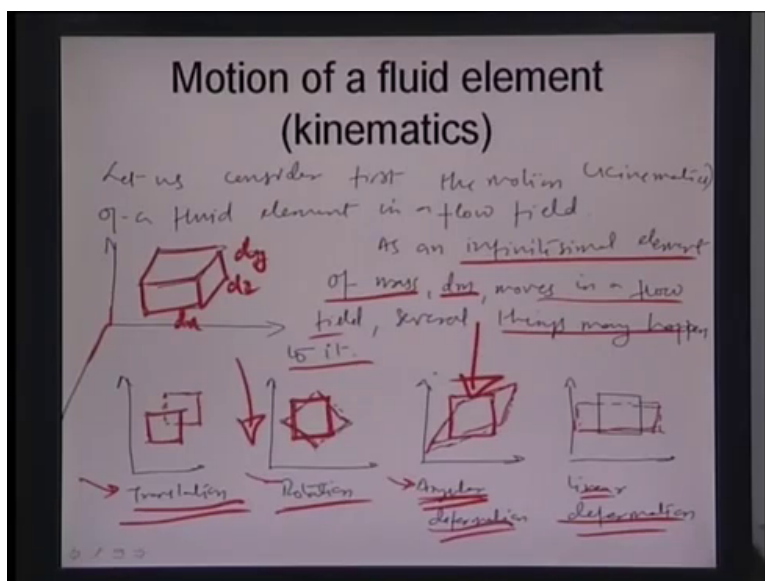 Motion of a fluid element
(kinematics)
Let us consider first the motion (kinematics)
of a fluid element in a flow field.
As an infinitisimal element
of mass, dm, moves in a flow
field, several things may happen
to it.
dy
dz
dx
Translation
Rotation
Angular
deformation
Linear
deformation